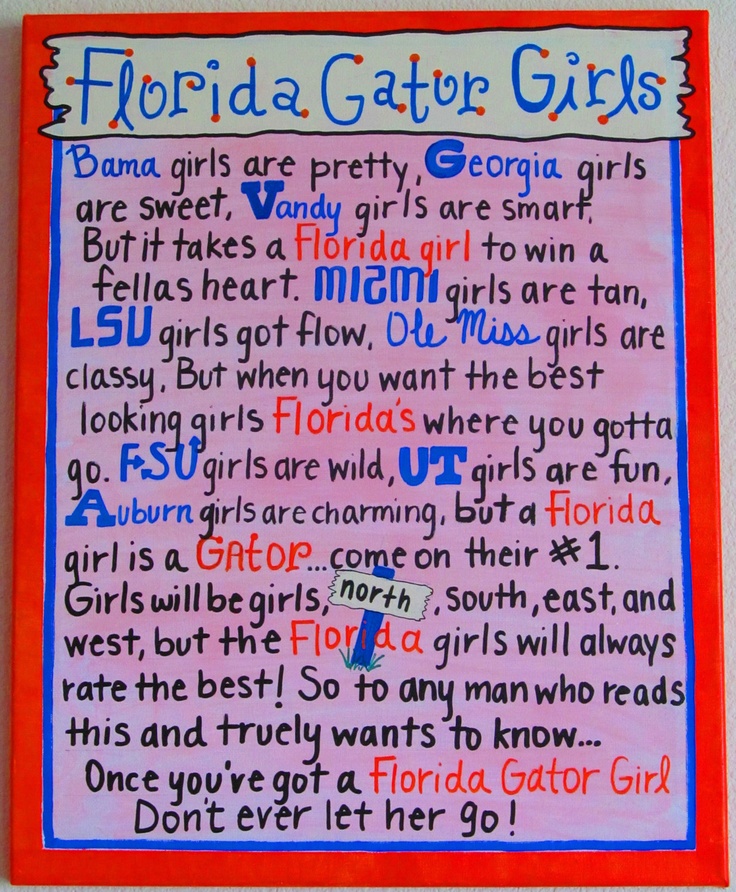 Florida Gator Girls
Bama girls are pretty, Georgia girls
are sweet, Vandy girls are smart.
But it takes a Florida girl to win a
fellas heart. MIAMI girls are tan,
LSU girls got flow, Ole Miss girls are
classy, But when you want the best
looking girls Florida's where you gotta
go. FSU girls are wild, UT girls are fun,
Auburn girls are charming, but a Florida
girl is a GATOR...come on their #1.
Girls will be girls, north, south, east, and
west, but the Florida girls will always
rate the best! So to any man who reads
this and truely wants to know...
Once you've got a Florida Gator Girl
Don't ever let her go!